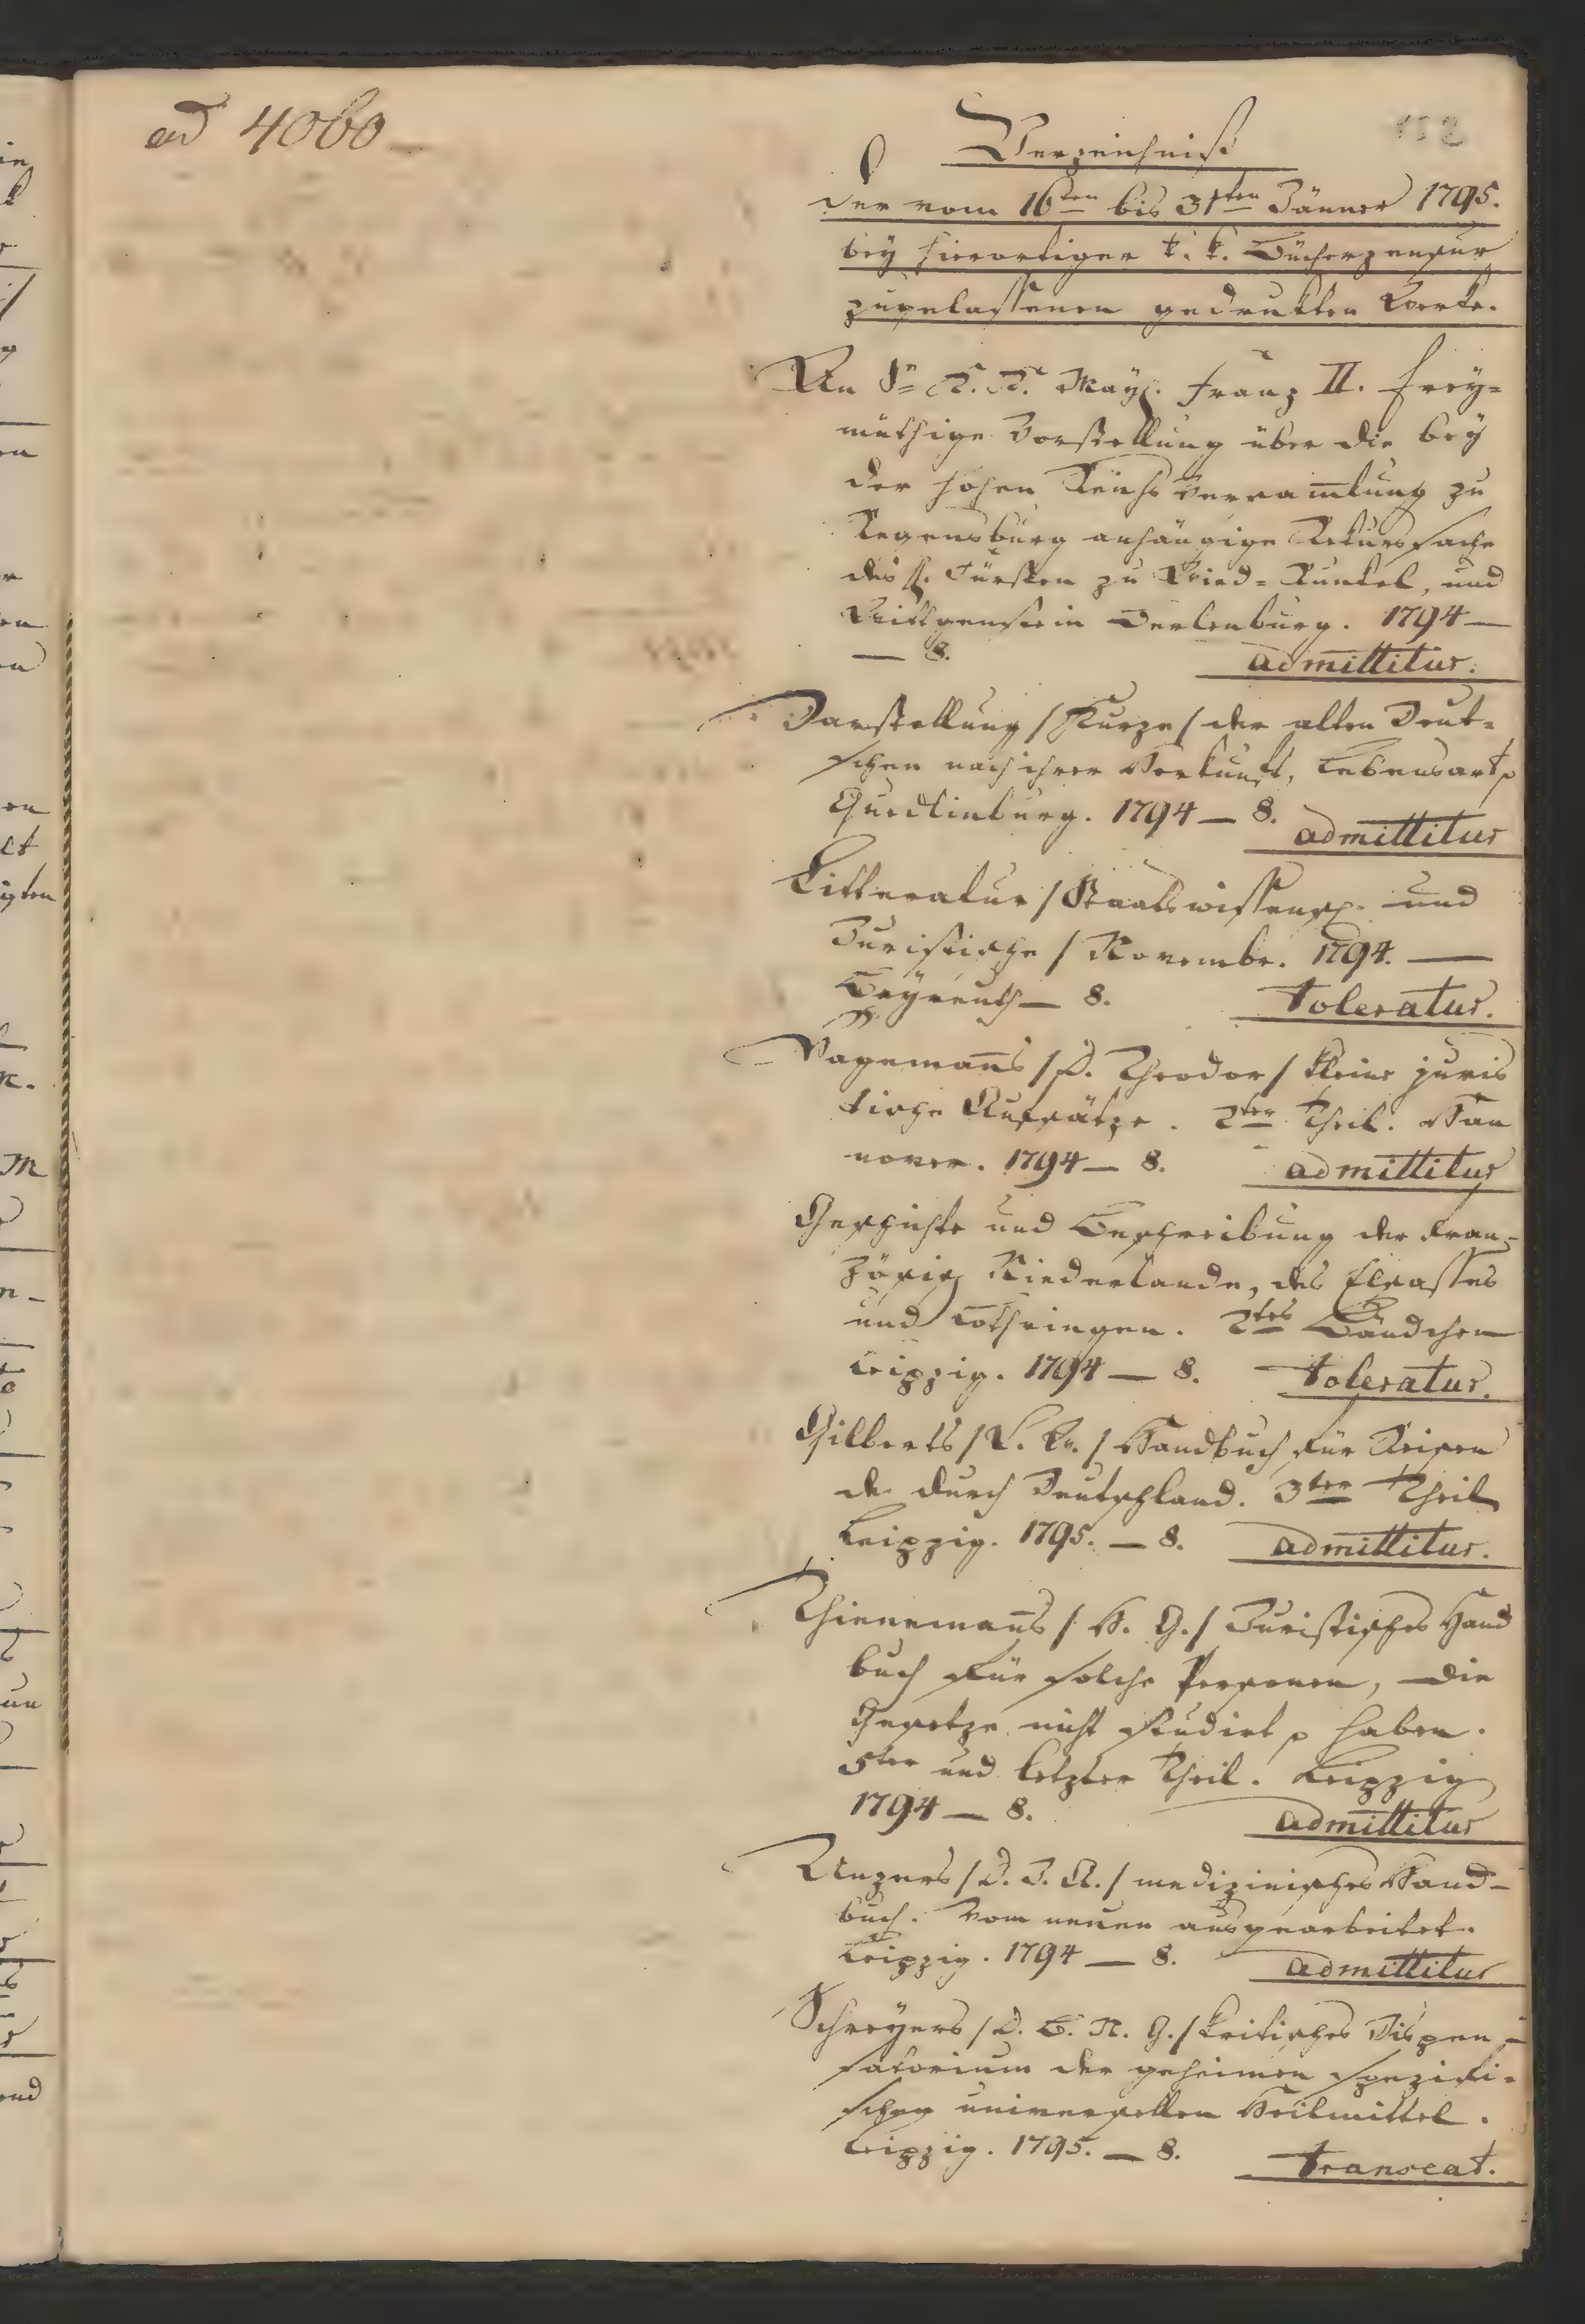 ad 4060
Verzeichniß
der vom 16ten bis 31ten Jänner 1795.
bey hierortiger k. k. Bücherzensur
zugelassenen gedrukten Werke.
An Sr K. K. May. Franz II. Frey=
müthige Vorstellung über die bey
der hohen Reichsversam̅lung zu
Regensburg anhängige Rekurssache
des H. Fürsten zu Wied=Runkel, und
Wittgenstein Berlenburg. 1794 —
— 8. admittitur.
Darstellung /Kurze/ der alten Deut=
schen nach ihrer Herkunft, Lebensart p
Quedlinburg. 1794 — 8. admittitur
Litteratur /Staatswissensch. und
Juristische/ Novembr. 1794. —
Bayreuth — 8. toleratur.
Hageman̅s /D. Theodor/ kleine juris
tische Aufsätze. 2ter Theil. Han
nover. 1794 — 8. admittitur
Geschichte und Beschreibung der Fran=
zösisch Niederlande, des Elsasses
und Lothringen. 2tes Bändchen
Leipzig. 1794 — 8. toleratur.
Gilberts /L. W./ Handbuch für Reisen
de durch Deutschland. 3ter Theil
Leipzig. 1795. — 8. admittitur.
Thieneman̅s /H. G./ Juristisches Hand
buch für solche Personen, die
Gesetze nicht studirt p haben.
5ter und letzter Theil. Leipzig
1794 — 8. admittitur
Unzers /D. J. A./ medizinisches Hand=
buch. Vom neuen ausgearbeitet.
Leipzig. 1794 — 8. admittitur
Schreyers /D. B. N. G./ kritisches Dispen=
satorium der geheimen spezifi=
schen universellen Heilmittel.
Leipzig. 1795. — 8. transeat.